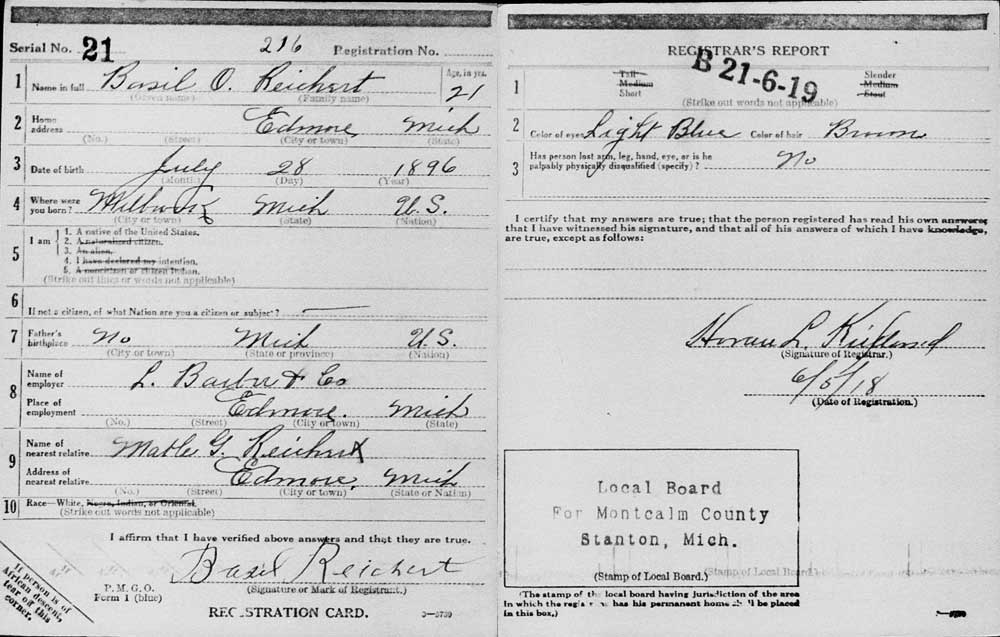 Serial No. 21 216 Registration No.
1 Name in full Basil O. Reichert Age, in yrs. 21
(Given name) (Family name)
2 Home address Edmore Mich
(No.) (Street) (City or town) (State)
3 Date of birth July 28 1896
(Month) (Day) (Year)
4 Where were you born? Mich U.S.
(City or town) (State) (Nation)
5 I am
1. A native of the United States.
2. A naturalized citizen.
3. An alien.
4. I have declared my intention.
5. A noncitizen or citizen Indian.
(Strike out lines or words not applicable)
6 If not a citizen, of what Nation are you a citizen or subject?
7 Father's birthplace No Mich U.S.
(City or town) (State or province) (Nation)
8 Name of employer L. Barber & Co
Place of employment Edmore. Mich
(No.) (Street) (City or town) (State)
9 Name of nearest relative G. Reichert
Address of nearest relative Edmore, Mich
(No.) (Street) (City or town) (State or Nation)
10 Race—White, Negro, Indian, or Oriental.
(Strike out words not applicable)
I affirm that I have verified above answers and that they are true.
Basil Reichert
P. M. G. O.
Form 1 (blue)
(Signature or Mark of Registrant.)
REGISTRATION CARD.
3—5739
If person is of
African descent,
tear off this
corner.
REGISTRAR'S REPORT
B 21-6-19
1 Tall
Medium
Short
Slender
Medium
Stout
(Strike out words not applicable)
2 Color of eyes Light Blue Color of hair Brown
3 Has person lost arm, leg, hand, eye, or is he
palpably physically disqualified (specify)? No
I certify that my answers are true; that the person registered has read his own answers;
that I have witnessed his signature, and that all of his answers of which I have knowledge,
are true, except as follows:
L.
(Signature of Registrar.)
6/5/18
(Date of Registration.)
Local Board
For Montcalm County
Stanton, Mich.
(Stamp of Local Board.)
(Stamp of Local Board.)
(The stamp of the local board having jurisdiction of the area
in which the registrant has his permanent home shall be placed
in this box.)